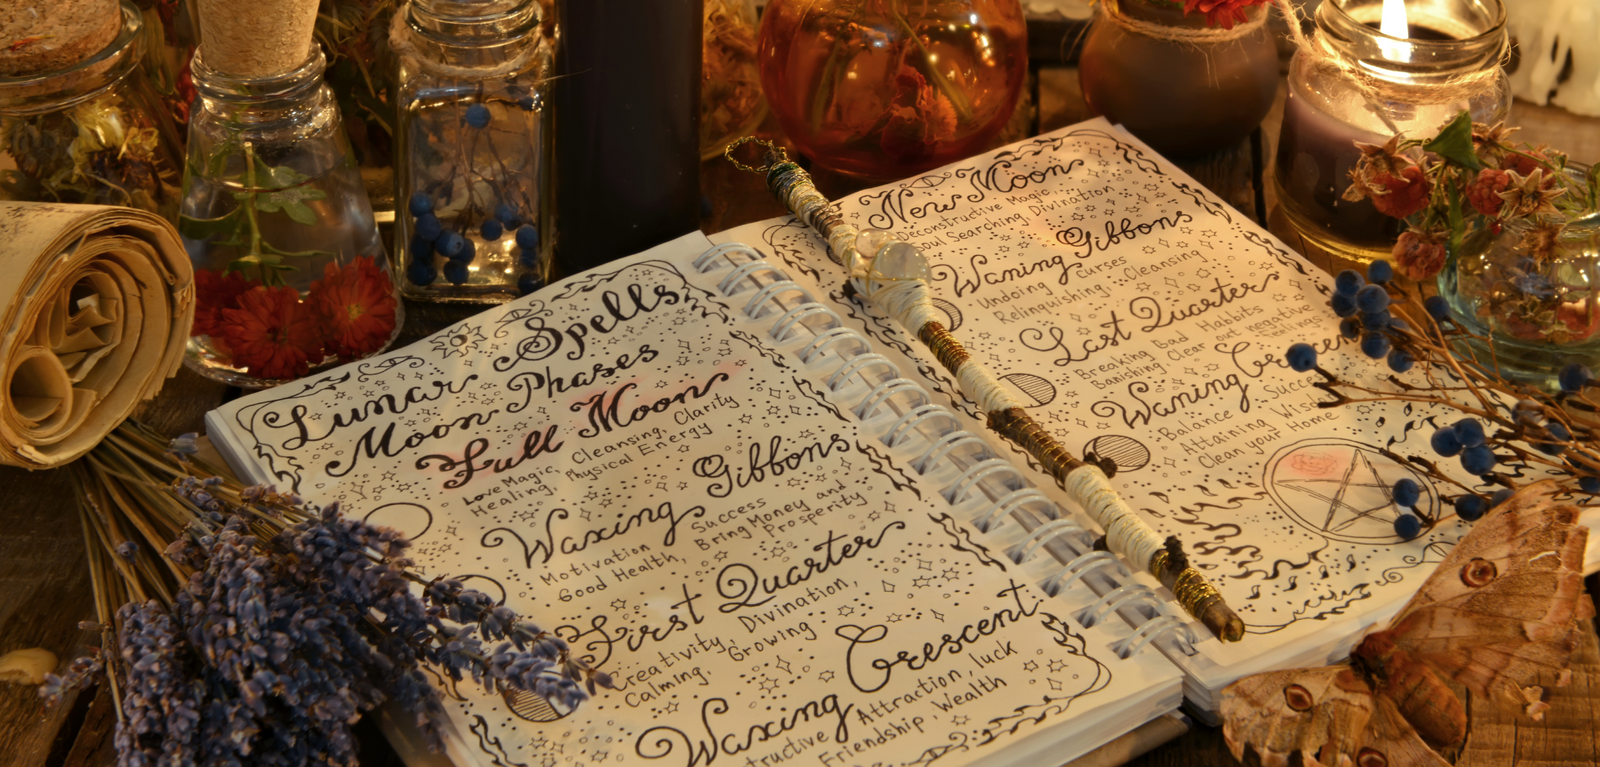 Lunar Spells
Moon Phases
Full Moon
Love Magic, Cleansing, Clarity
Healing, Physical Energy
Waxing Gibbons
Motivation Success
Good Health, Bring Money and
Prosperity
First Quarter
Creativity, Divination,
Calming, Growing
Waxing Crescent
Attraction, luck
Friendship, Wealth
New Moon
Deconstructive Magic
Soul Searching Divination
Waning Gibbons
Undoing curses
Relinquishing, Cleansing
Last Quarter
Breaking Bad Habbits
Banishing Clear out negative
feelings
Waning Crescent
Balance, Success
Attaining
Clean your Home